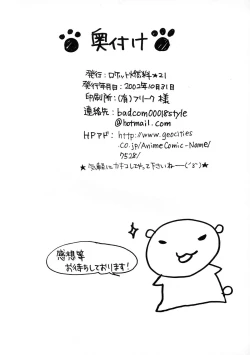 奥付け
発行：ロケット燃料★21
発行年月日：2002年10月31日
印刷所：(有)フリーク 様
連絡先：badcom00018style
@hotmail.com
HPアド：http://www.geocities
.co.jp/AnimeComic-Name/
7528/
★気軽にカチコしてやって下さいねー
感想等
お待ちしております!